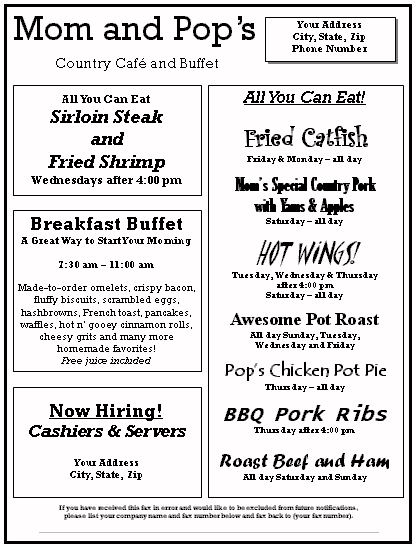 Mom and Pop's
Country Café and Buffet
Your Address
City, State, Zip
Phone Number
All You Can Eat
Sirloin Steak
and
Fried Shrimp
Wednesdays after 4:00 pm
Breakfast Buffet
A Great Way to Start Your Morning
7:30 am – 11:00 am
Made-to-order omelets, crispy bacon,
fluffy biscuits, scrambled eggs,
hashbrowns, French toast, pancakes,
waffles, hot n' gooey cinnamon rolls,
cheesy grits and many more
homemade favorites!
Free juice included
Now Hiring!
Cashiers & Servers
Your Address
City, State, Zip
All You Can Eat!
Fried Catfish
Friday & Monday – all day
Mom's Special Country Pork
with Yams & Apples
Saturday – all day
HOT WINGS!
Tuesday, Wednesday & Thursday
after 4:00 pm
Saturday – all day
Awesome Pot Roast
All day Sunday, Tuesday,
Wednesday and Friday
Pop's Chicken Pot Pie
Thursday – all day
BBQ Pork Ribs
Thursday after 4:00 pm
Roast Beef and Ham
All day Saturday and Sunday
If you have received this fax in error and would like to be excluded from future notifications,
please list your company name and fax number below and fax back to (your fax number).